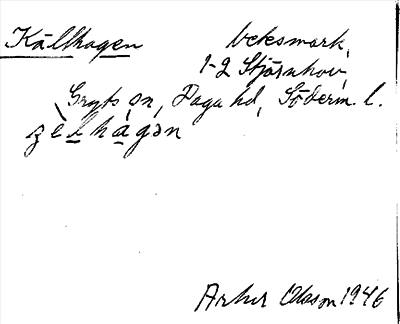 Källhagen betesmark,
1-2 Stjärnhov,
Gryts sn, Daga hd, Söderm. l.
Arthur Olsson 1946